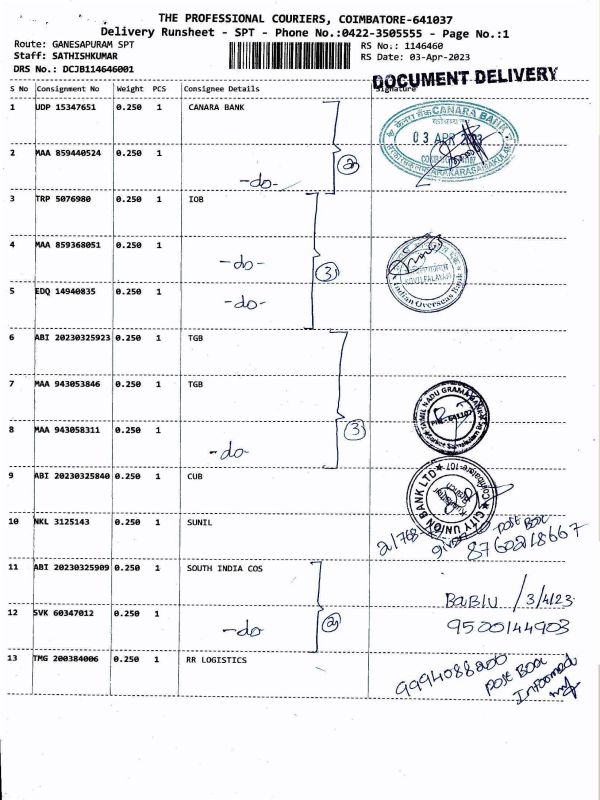 THE PROFESSIONAL COURIERS, COIMBATORE-641037
Delivery Runsheet - SPT - Phone No.:0422-3505555 - Page No.:1
Route: GANESAPURAM SPT RS No.: 1146460
Staff: SATHISHKUMAR RS Date: 03-Apr-2023
DRS No.: DCJB114646001
DOCUMENT DELIVERY
S No Consignment No Weight PCS Consignee Details Signature
1 UDP 15347651 0.250 1 CANARA BANK
CANARA BANK
03 APR 2023
2 MAA 859440524 0.250 1 -do- 2
3 TRP 5076980 0.250 1 IOB
4 MAA 859368051 0.250 1 -do- 3
Indian Overseas Bank
5 EDQ 14940835 0.250 1 -do-
6 ABI 20230325923 0.250 1 TGB
7 MAA 943053846 0.250 1 TGB
TAMIL NADU GRAMA BANK
8 MAA 943058311 0.250 1 -do- 3
9 ABI 20230325840 0.250 1 CUB
CITY UNION BANK LTD
Coimbatore-107
Branch
10 NKL 3125143 0.250 1 SUNIL
Post Box
8760218667
11 ABI 20230325909 0.250 1 SOUTH INDIA COS
BaBlu /3/4/23
12 SVK 60347012 0.250 1 -do- 2
9500144903
13 TMG 200384006 0.250 1 RR LOGISTICS
9994088200
Post Box
Informed